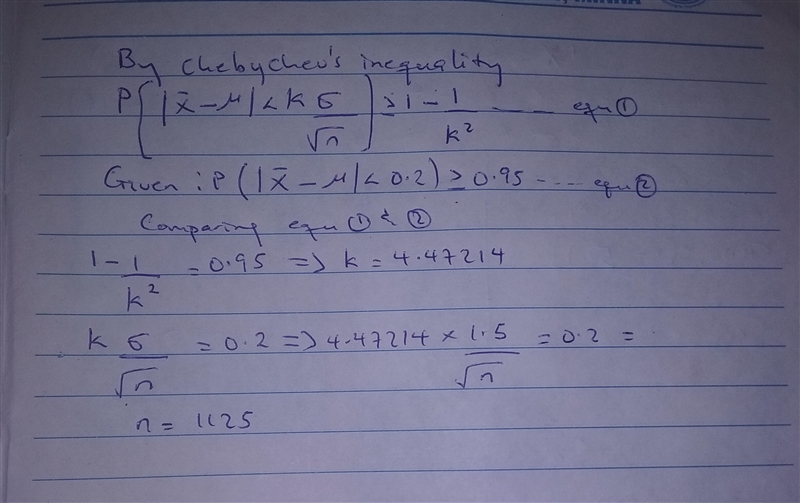 By Chebychev's inequality
P[|x̄ - μ| < k σ/√n] ≥ 1 - 1/k² ---- equ ①
Given : P(|x̄ - μ| < 0.2) ≥ 0.95 ---- equ ②
Comparing equ ① & ②
1 - 1/k² = 0.95 => k = 4.47214
k σ/√n = 0.2 => 4.47214 × 1.5/√n = 0.2 =
n = 1125